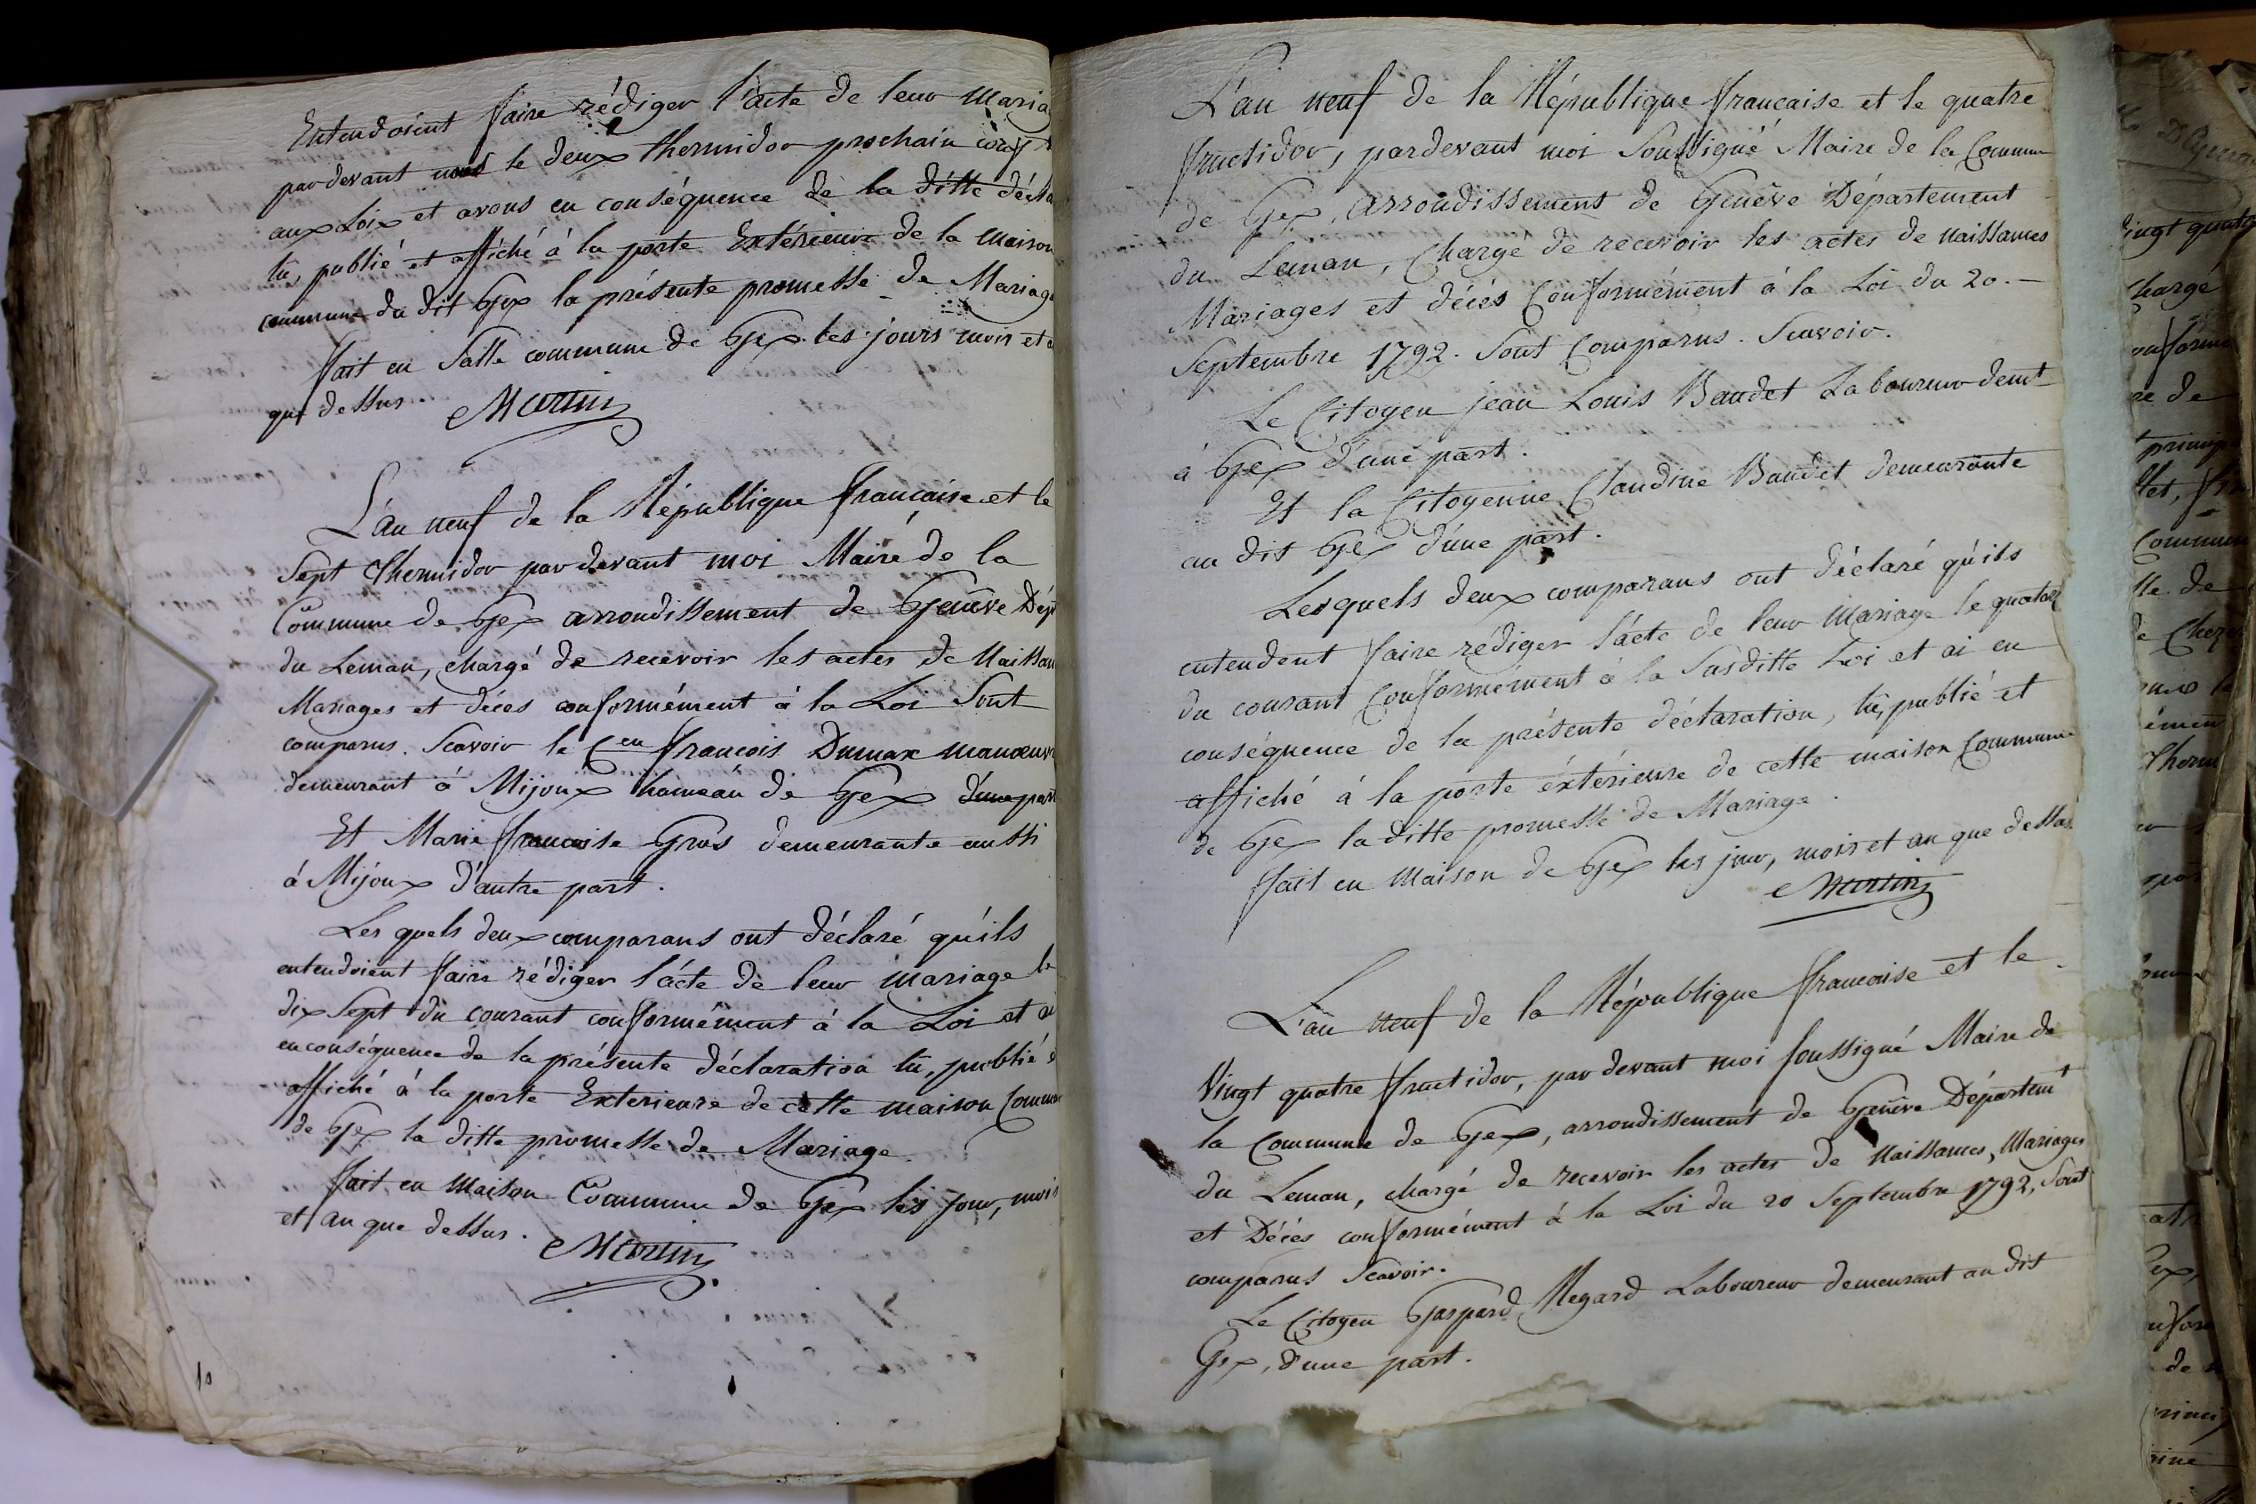 Entendoient faire rédiger l'acte de leur Maria
par devant nous le deux thermidor prochain
aux Loix et avons en conséquence de la ditte décla
lu, publié et affiché à la porte Extérieure de la Maison
commune du dit Gex la présente promesse de Mariage
fait en Salle commune de Gex les jours mois et a
que dessus.
Martin
L'an neuf de la République française et le
Sept Thermidor par devant moi Maire de la
Commune de Gex arrondissement de Genêve Dép
du Leman, chargé de recevoir les actes de Naissan
Mariages et décès conformément à la Loi Sont
comparus. Scavoir le Cen françois Dumax manœuv
demeurant à Mijoux hameau de Gex d'une part
Et Marie francoise Gros demeurante aussi
à Mijoux d'autre part.
Les quels deux comparans ont déclaré qu'ils
entendoient faire rédiger l'acte de leur Mariage le
dix Sept du courant conformément à la Loi et ai
en conséquence de la présente déclaration lu, publié e
affiché à la porte Exterieure de cette maison Commun
de Gex la ditte promesse de Mariage.
fait en Maison Commune de Gex les jour, mois
et an que dessus.
Martin
10
L'an neuf de la République française et le quatre
fructidor, pardevant moi Soussigné Maire de la Commune
de Gex, arrondissement de Genêve Département
du Leman, Chargé de recevoir les actes de naissances
Mariages et décès Conformément à la Loi du 20.-
Septembre 1792. Sont Comparus. Scavoir.
Le Citoyen jean Louis Baudet Laboureur demt
à Gex d'une part.
Et la Citoyenne Claudine Baudet demeurante
au dit Gex d'une part.
Lesquels deux comparans ont déclaré qu'ils
entendent faire rédiger l'acte de leur Mariage le quatorze
du courant Conformément à la Susditte Loi et ai en
conséquence de la présente déclaration, lu, publié et
affiché à la porte éxtérieure de cette maison Commune
de Gex la ditte promesse de Mariage.
fait en Maison de Gex les jour, mois et an que dessus.
Martin
L'an neuf de la République francoise et le
Vingt quatre fructidor, par devant moi soussigné Maire de
la Commune de Gex, arrondissement de Genêve Départemt
du Leman, chargé de recevoir les actes de Naissances, Mariages
et Décès conformément à la Loi du 20 Septembre 1792, Sont
comparus Scavoir.
Le Citoyen Gaspard Megard Laboureur demeurant au dit
Gex, d'une part.